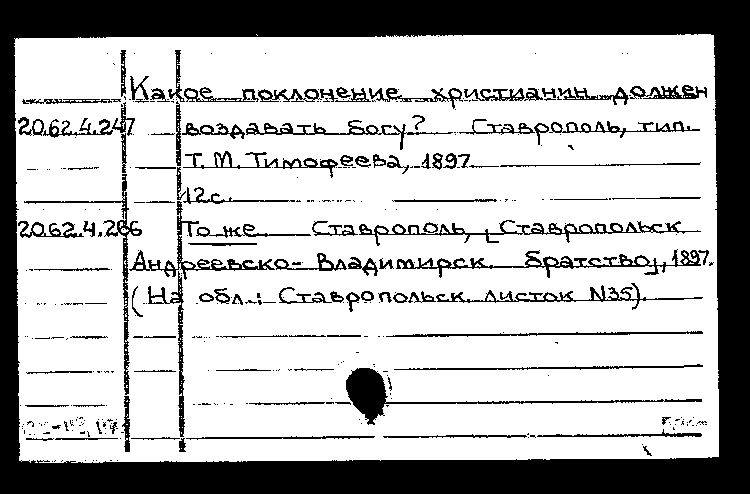 Какое поклонение христианин должен
20.62.4.247 воздавать богу? Ставрополь, тип.
Т. М. Тимофеева, 1897.
12 с.
20.62.4.286 То же. Ставрополь, [Ставропольск.
Андреевско-Владимирск. братство], 1897.
(На обл.: Ставропольск. листок N35).